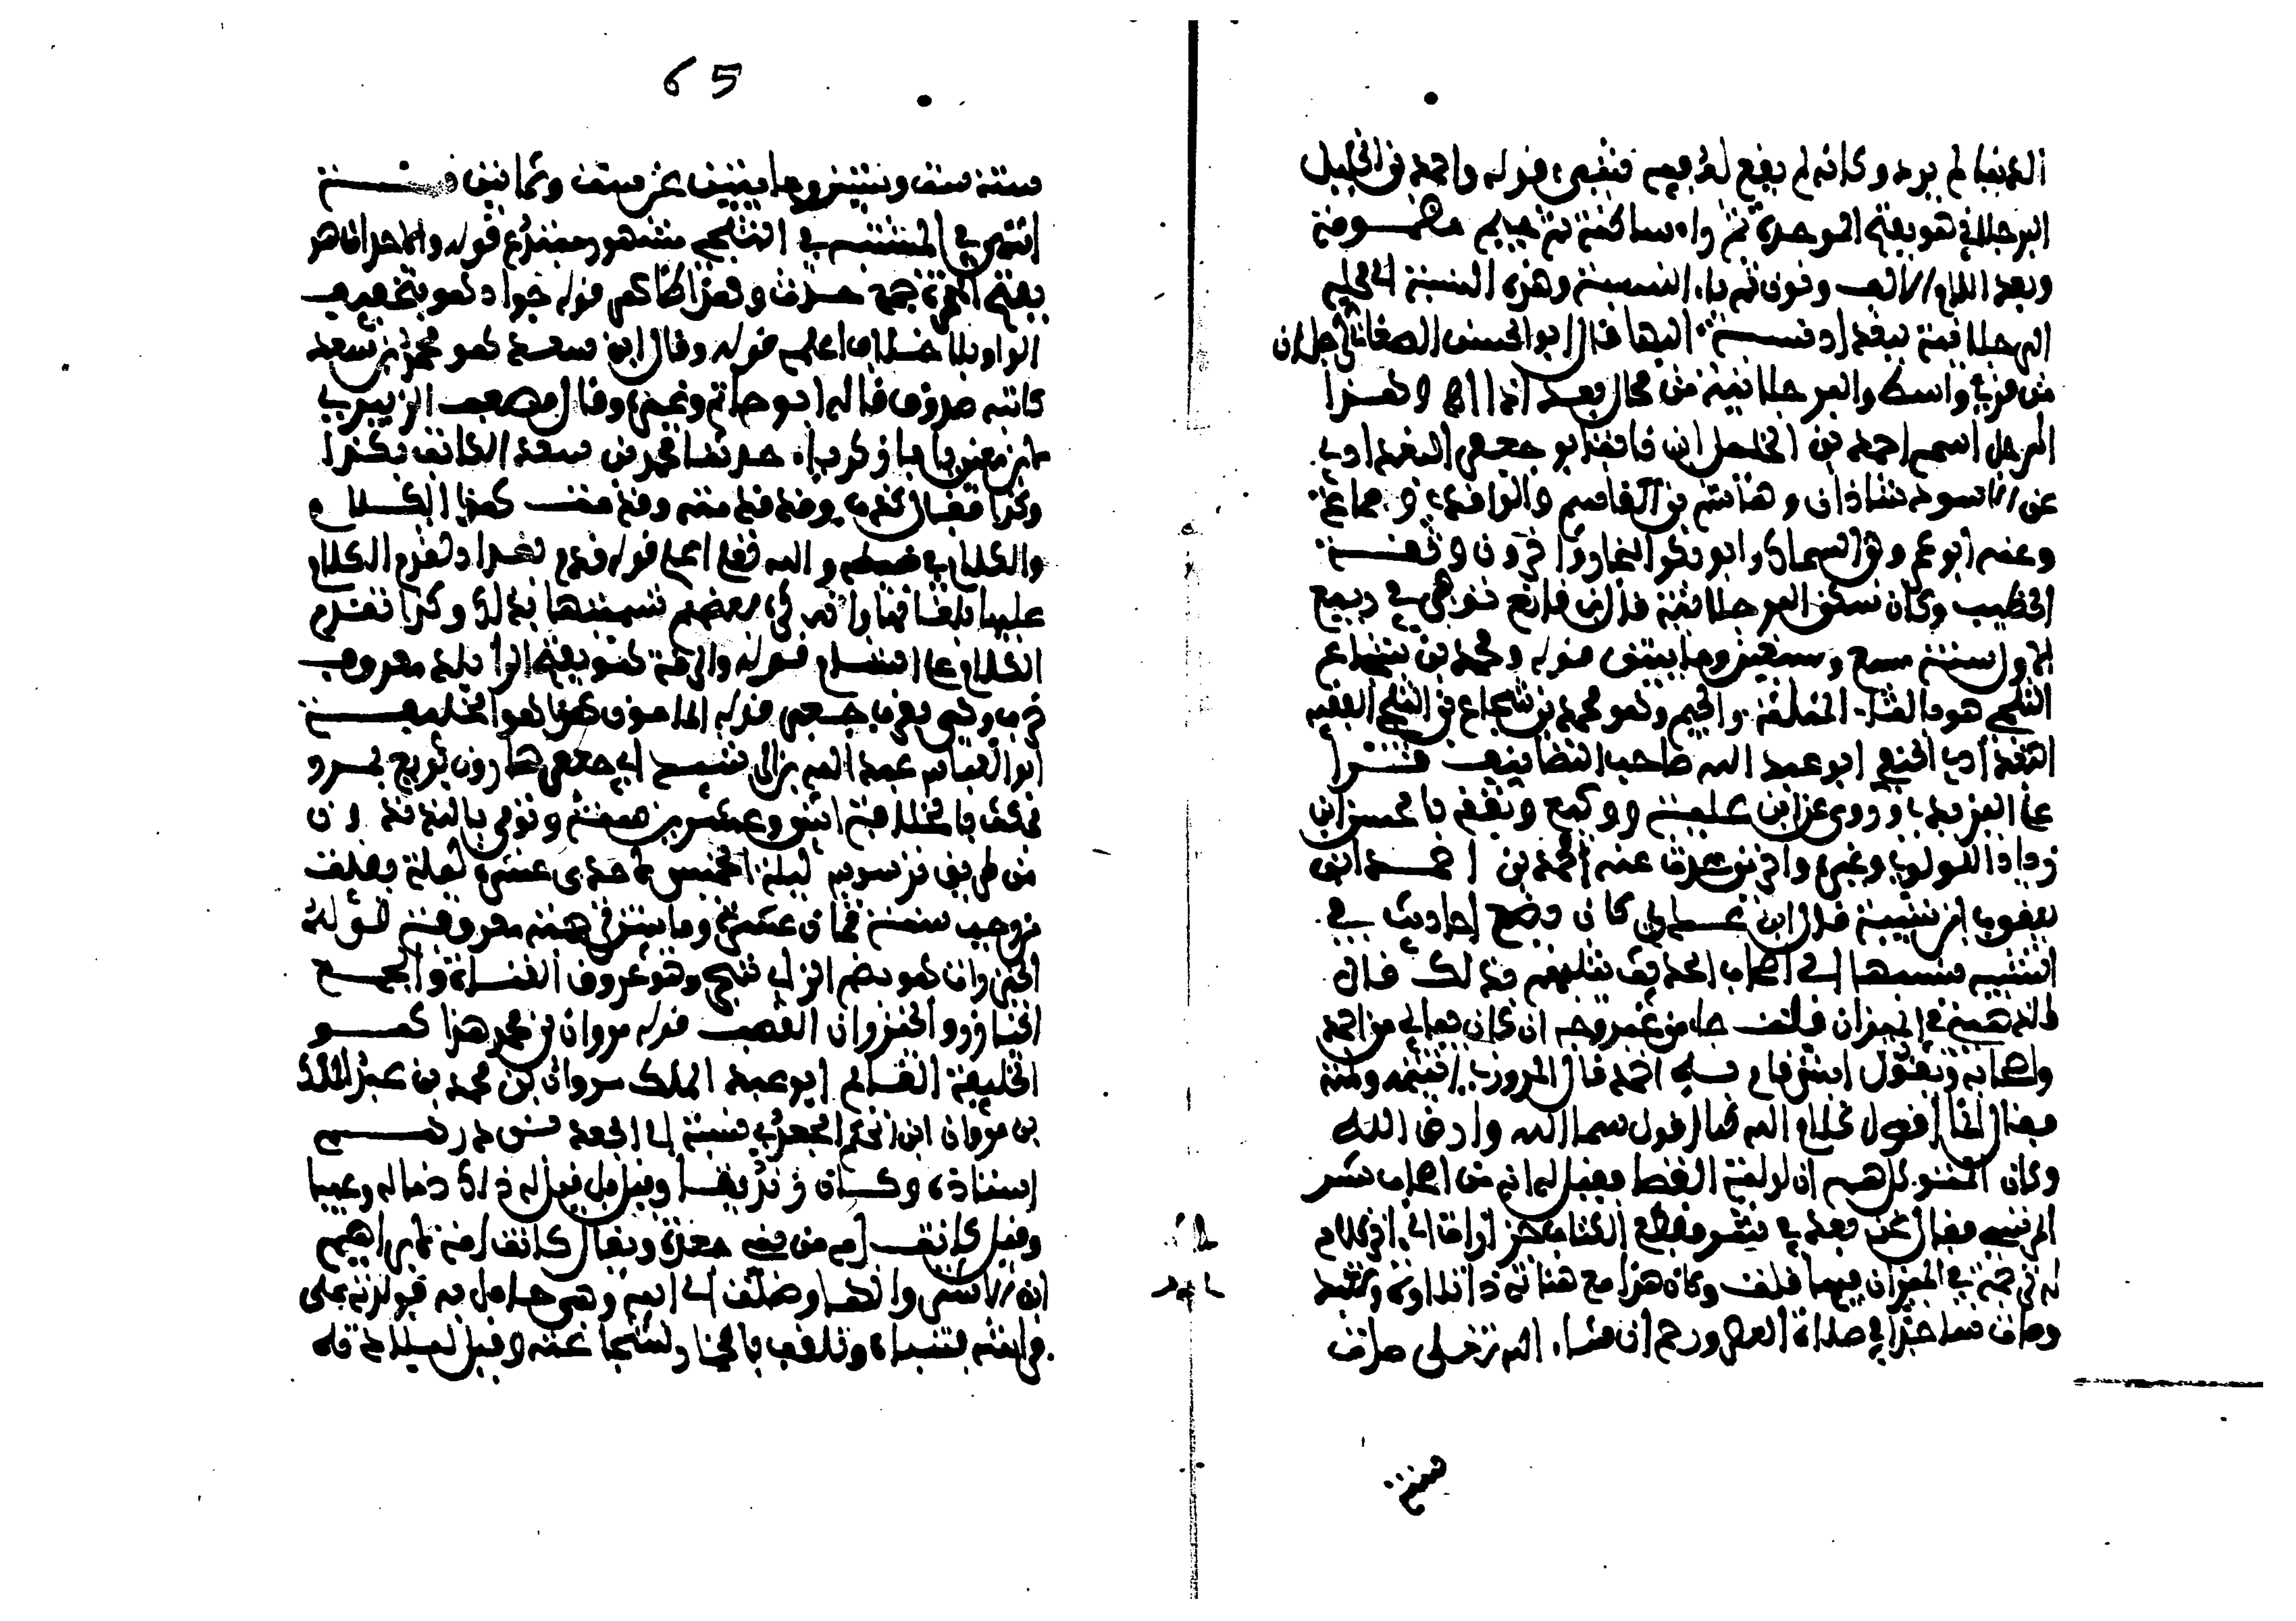 الدنيا لم يرد وكانه لم يقع له فيه شيء قوله واحمد بن الخليل
البرجلاني هو بضم الموحدة ثم راء ساكنة ثم جيم مضمومة
وبعد اللام الالف ونون ثم ياء النسبة وهذه النسبة الى محلة
البرجلانية ببغداد نسبة اليها قال ابو الحسن
من قرى واسط والبرجلانية من محال بغداد وهذا
الرجل اسمه احمد بن الخليل ابن ثابت ابو جعفر البغدادي
عن الاسود شاذان وهاشم بن القاسم والواقدي وجماعة
وعنه ابو عمرو بن السماك وابو بكر النجاد وءاخرون وثقه
الخطيب وكان يسكن البرجلانية قال ابن قانع توفي في ربيع
الاول سنة سبع وسبعين ومايتين قوله ومحمد بن شجاع
الثلجي هو بالثاء المثلثة والجيم وهو محمد بن شجاع بن الثلجي الفقيه
البغدادي الحنفي ابو عبد الله صاحب التصانيف قرا
على اليزيدي وروى عن ابن علية ووكيع وتفقه بالحسن ابن
زياد اللولوي وغيره واخر من حدث عنه محمد بن احمد ابن
يعقوب ابن شيبة قال ابن عدي كان يضع احاديث في
التشبيه ينسبها الى اصحاب الحديث يثلبهم بذلك قال
الذهبي في الميزان قلت جاء من غير وجه انه كان ينال من احمد
واصحابه ويقول ايش قام به احمد قال المروزي اتيته ولمته
فقال انما اقول كلام الله كما اقول سماء الله وارض الله
وكان المتوكل هم ان يوليه القضاء فقيل له انه من اصحاب بشر
المريسي فقال نحن بعد في بشر فقطع الكتاب جزازات الى اخر كلامه
له ترجمة في الميزان فيها قلت وكان هذا مع هناته ذا تلاوة وتعبد
ومات ساجدا في صلاة العصر ورحم ان شاء الله تعلى مات
سنة
65
سنة ست وستين ومايتين عن ست وثمانين سنة
انتهى المشتبه في الثلجي مشهور مبتدع قوله والحراني هو
بفتح الحاء قوله جواد هو بتخفيف
الواو بلا خلاف اعلمه قوله وقال ابن سعد هو محمد بن سعد
كاتبه صدوق قاله ابو حاتم وغيره وقال مصعب الزبيري
لابن معين يا ابا زكرياء حدثنا محمد بن سعد الكاتب بكذا
وكذا فقال كذب وقد تقدم هذا الكلام
والكلام والله اعلم قوله قدم بغداد تقدم الكلام
عليها بلغاتها وانه كره بعضهم تسميتها بذلك وكذا تقدم
الكلام على الشام قوله والرقة هو بفتح الراء بلد معروف
قوله المامون هذا هو الخليفة
ابو العباس عبد الله بن الرشيد ابي جعفر هارون بويع بمرو
فمكث بالخلافة اثنين وعشرين سنة وتوفي بالبدندون
من طريق طرسوس ليلة الخميس لاحدى عشرة ليلة بقيت
من رجب سنة ثمان عشرة ومايتين ترجمته معروفة قوله
الخيزران هو بضم الزاي شجر وهو عروق القناة والجمع
الخيازر والخيزران القصب قوله مروان بن محمد هذا هو
الخليفة ابو عبد الملك مروان بن محمد بن عبد الملك
بن مروان ابن الحكم الجعدي نسبة الى الجعد بن درهم
استاذه وكان زنديقا وقيل بل قيل له ذلك ذما له وعيبا
وقيل كانت امه من جعدة ويقال كانت امة لابراهيم
ابن الاشتر وصلت الى ابيه وهي حامل به فولدته على
فراشه ويلقب بالحمار لشجاعته وقيل لميلاده